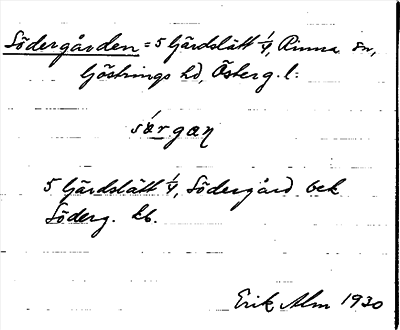 Södergården = 5 Gärdslätt 1/4, Rinna sn,
Göstrings hd, Österg. l:
sǿrgan
5 Gärdslätt 1/4, Södergård och
Söderg. kb.
Erik Alm 1930